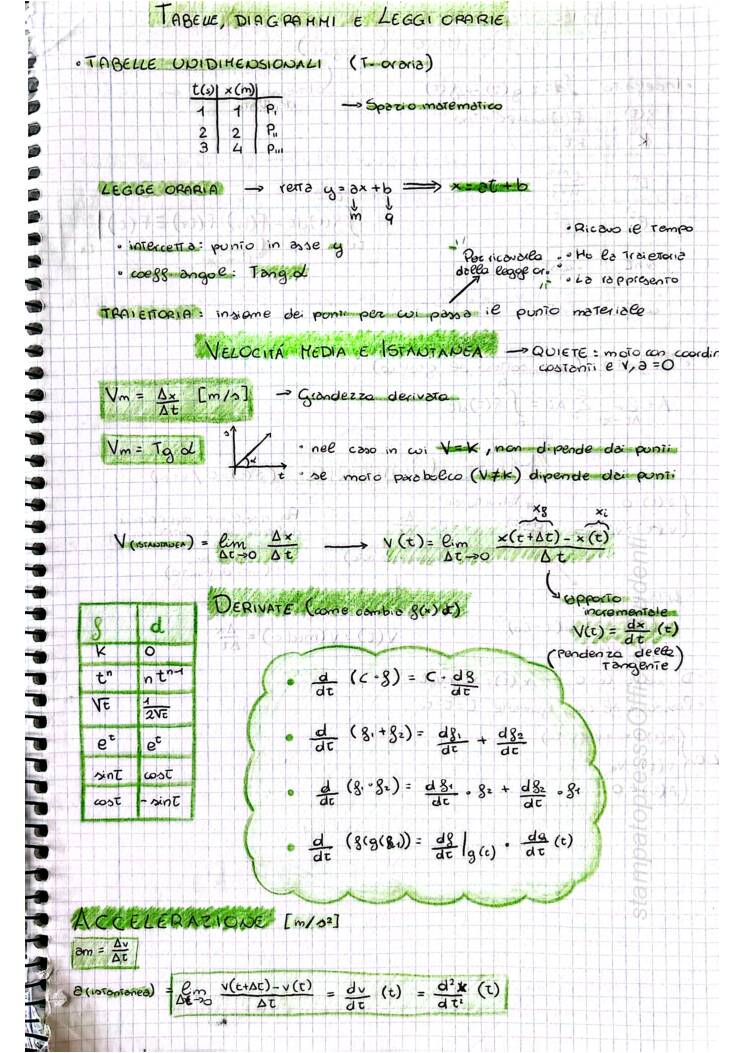 TABELLE, DIAGRAMMI E LEGGI ORARIE
• TABELLE UNIDIMENSIONALI (T. oraria)
t(s) | x(m)
1 | 1 | P₁
2 | 2 | P₁₁
3 | 4 | P₁₁₁
→ Spazio matematico
LEGGE ORARIA → retta y = ax + b ⟹ x = at + b
↓ ↓
m q
• intercetta: punto in asse y
• coeff. angole: Tang α
Per ricavarla
dalla legge or.
• Ricavo il tempo
• Ho la traiettoria
• La rappresento
TRAIETTORIA: insieme dei punti per cui passa il punto materiale
VELOCITÁ MEDIA E ISTANTANEA → QUIETE: moto con coordin
costanti e v, a = 0
Vm = Δx/Δt [m/s] → Grandezza derivata
Vm = Tg α
s
α
t
• nel caso in cui V=K, non dipende dai punti
• se moto parabolico (V≠K) dipende dai punti
V(ISTANTANEA) = lim Δt→0 Δx/Δt → v(t) = lim Δt→0 (x(t+Δt) - x(t))/Δt
xf xi
rapporto
incrementale
V(t) = dx/dt (t)
(pendenza della
tangente)
DERIVATE (come cambia f(x) dt)
f | d
K | 0
tⁿ | n tⁿ⁻¹
√t | 1/2√t
eᵗ | eᵗ
sint | cost
cost | - sint
• d/dt (c · f) = c · df/dt
• d/dt (f₁ + f₂) = df₁/dt + df₂/dt
• d/dt (f₁ · f₂) = df₁/dt · f₂ + df₂/dt · f₁
• d/dt (f(g(t))) = df/dt |g(t) · dg/dt (t)
ACCELERAZIONE [m/s²]
am = Δv/Δt
a(istantanea) = lim Δt→0 (v(t+Δt) - v(t))/Δt = dv/dt (t) = d²x/dt² (t)